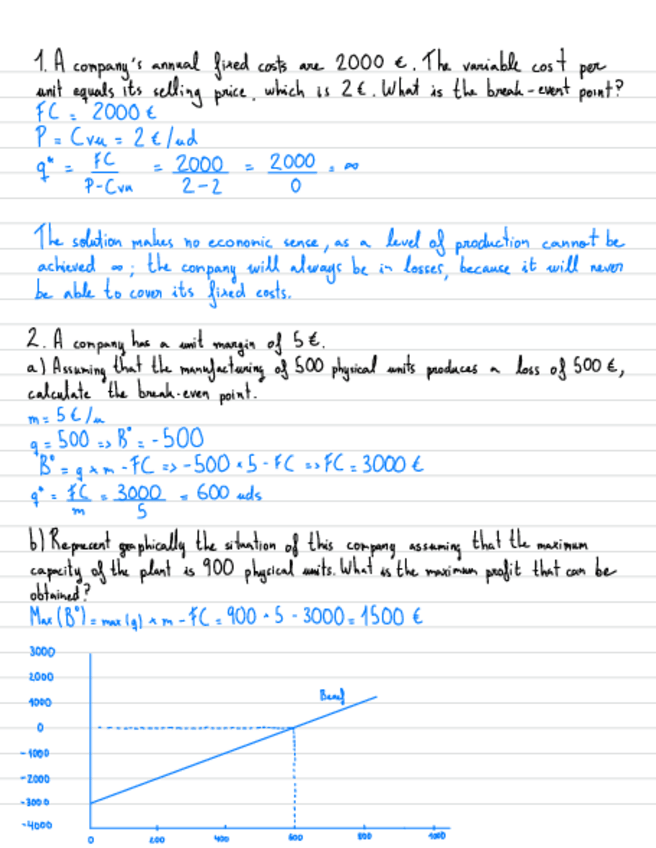 1. A company's annual fixed costs are 2000 €. The variable cost per
unit equals its selling price, which is 2€. What is the break-event point?
FC = 2000 €
P = Cvu = 2 €/ud
q* = FC / P-Cvu = 2000 / 2-2 = 2000 / 0 = ∞
The solution makes no economic sense, as a level of production cannot be
achieved ∞; the company will always be in losses, because it will never
be able to cover its fixed costs.
2. A company has a unit margin of 5 €.
a) Assuming that the manufacturing of 500 physical units produces a loss of 500 €,
calculate the break-even point.
m = 5 €/u
q = 500 => Bº = -500
Bº = q × m - FC => -500 × 5 - FC => FC = 3000 €
q* = FC / m = 3000 / 5 = 600 uds
b) Represent graphically the situation of this company assuming that the maximum
capacity of the plant is 900 physical units. What is the maximum profit that can be
obtained?
Max (Bº) = max (q) × m - FC = 900 · 5 - 3000 = 1500 €
3000
2000
1000
0
-1000
-2000
-3000
-4000
Benef
0 200 400 600 800 1000